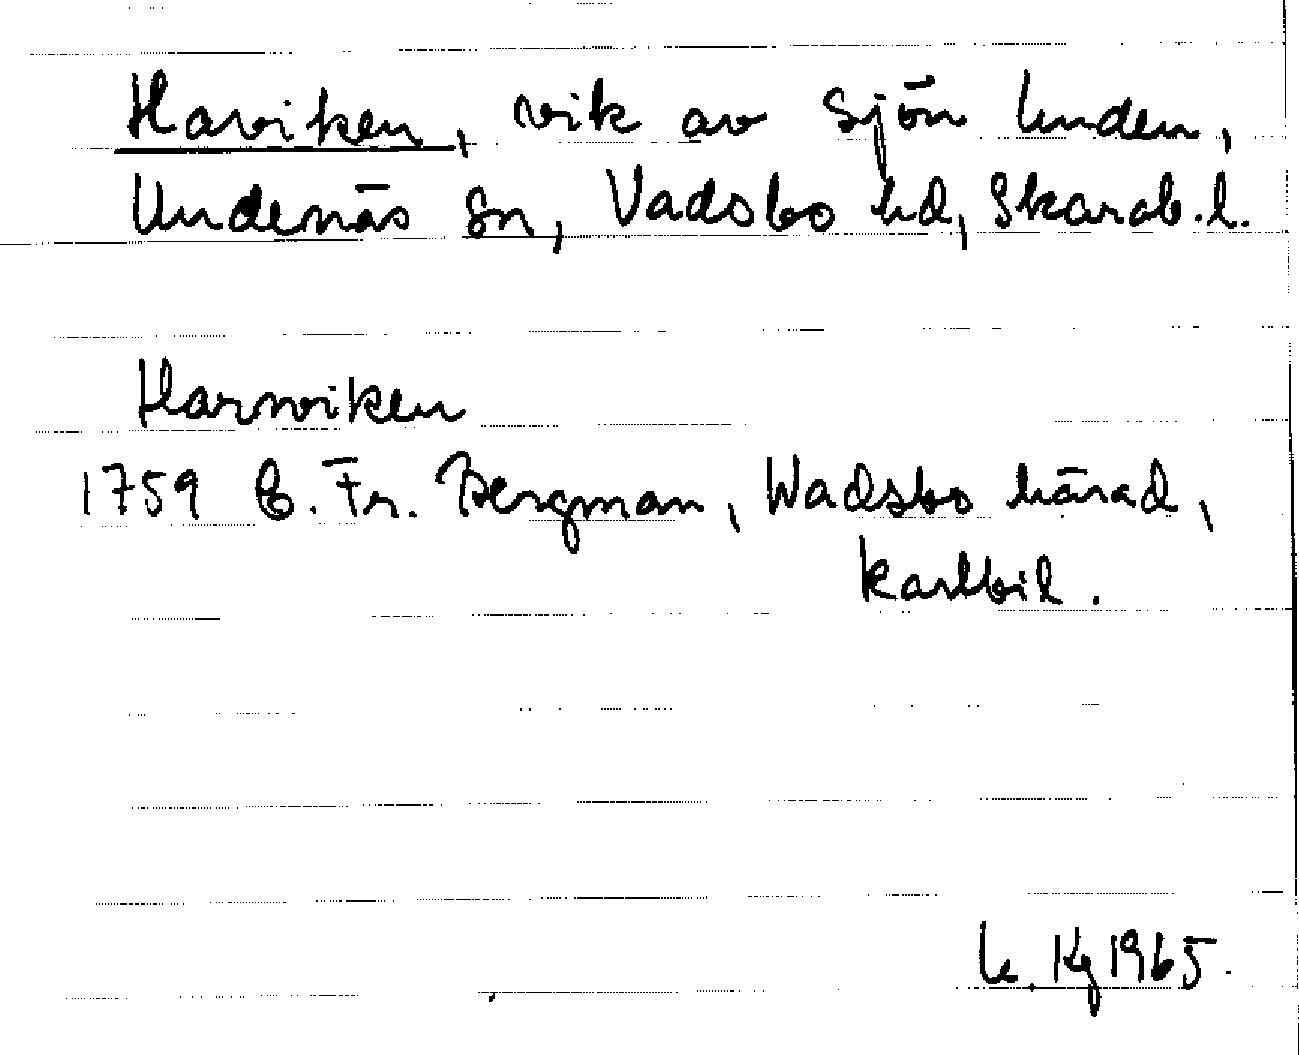 Haviken, vik av sjön Unden,
Undenäs sn, Vadsbo hd, Skarab. l.
Harwiken
1759 C. Fr. Bergman, Wadsbo härad,
kartbil.
Kg 1965.